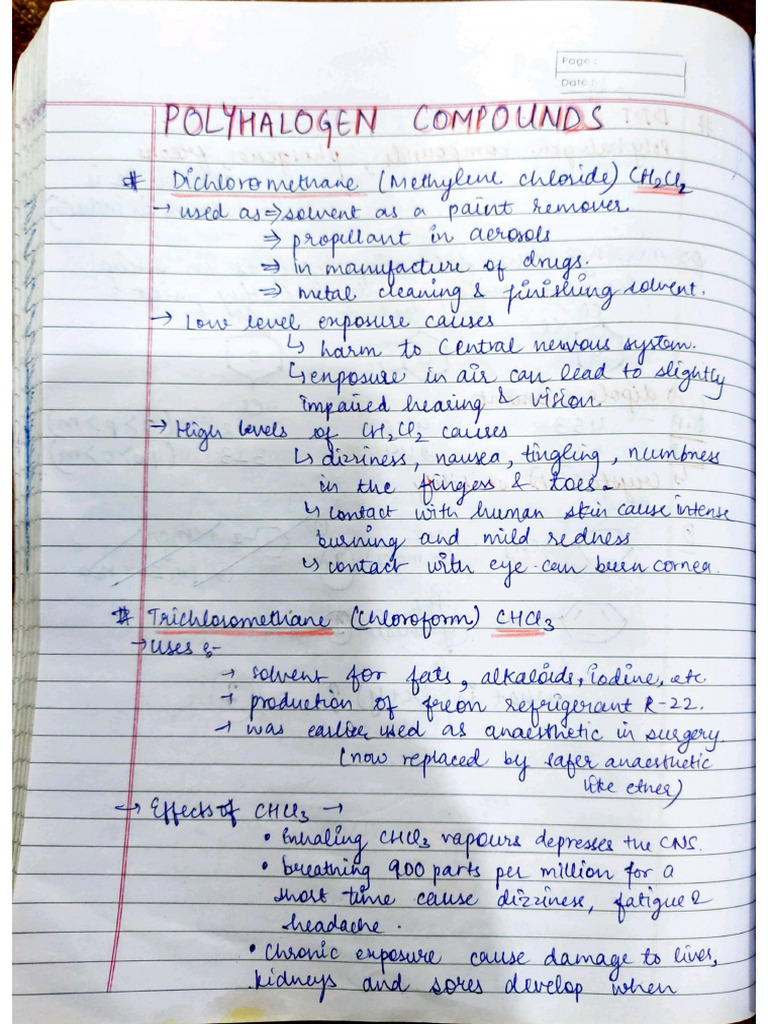 Page :
Date :
POLYHALOGEN COMPOUNDS
# Dichloromethane (Methylene chloride) CH₂Cl₂
→ used as ⇒ solvent as a paint remover
⇒ propellant in aerosols
⇒ in manufacture of drugs.
⇒ metal cleaning & finishing solvent.
→ Low level exposure causes
↳ harm to Central nervous system.
↳ enposure in air can lead to slightly
impaired hearing & vision.
→ High levels of CH₂Cl₂ causes
↳ dizziness, nausea, tingling, numbness
in the fingers & toes.
↳ contact with human skin cause intense
burning and mild redness
↳ contact with eye can burn cornea.
# Trichloromethane (Chloroform) CHCl₃
→ Uses :-
→ solvent for fats, alkaloids, iodine, etc
→ production of freon refrigerant R-22.
→ was earlier used as anaesthetic in surgery
(now replaced by safer anaesthetic
like ether)
→ Effects of CHCl₃ →
• Inhaling CHCl₃ vapours depresses the CNS.
• breathing 900 parts per million for a
short time cause dizziness, fatigue &
headache.
• Chronic exposure cause damage to liver,
kidneys and sores develop when